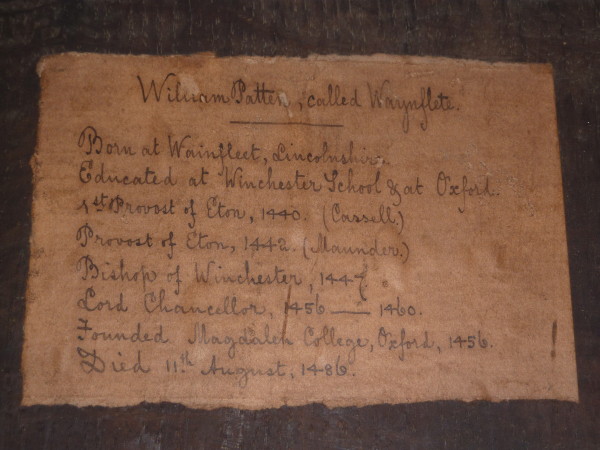 William Patten, called Waynflete.
Born at Wainfleet, Lincolnshire.
Educated at Winchester School & at Oxford.
1st Provost of Eton, 1440. (Cassell.)
Provost of Eton, 1442. (Maunder.)
Bishop of Winchester, 1447.
Lord Chancellor, 1456 — 1460.
Founded Magdalen College, Oxford, 1456.
Died 11th August, 1486.